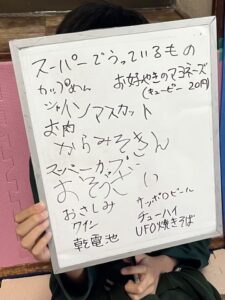 スーパーでうっているもの
カップめん
お好みやきのマヨネーズ
(キューピー 20円)
シャインマスカット
お肉
からみそきん
スーパーカップ
おそうざい
おさしみ
ワイン
乾電池
サッポロビール
チューハイ
UFO焼きそば